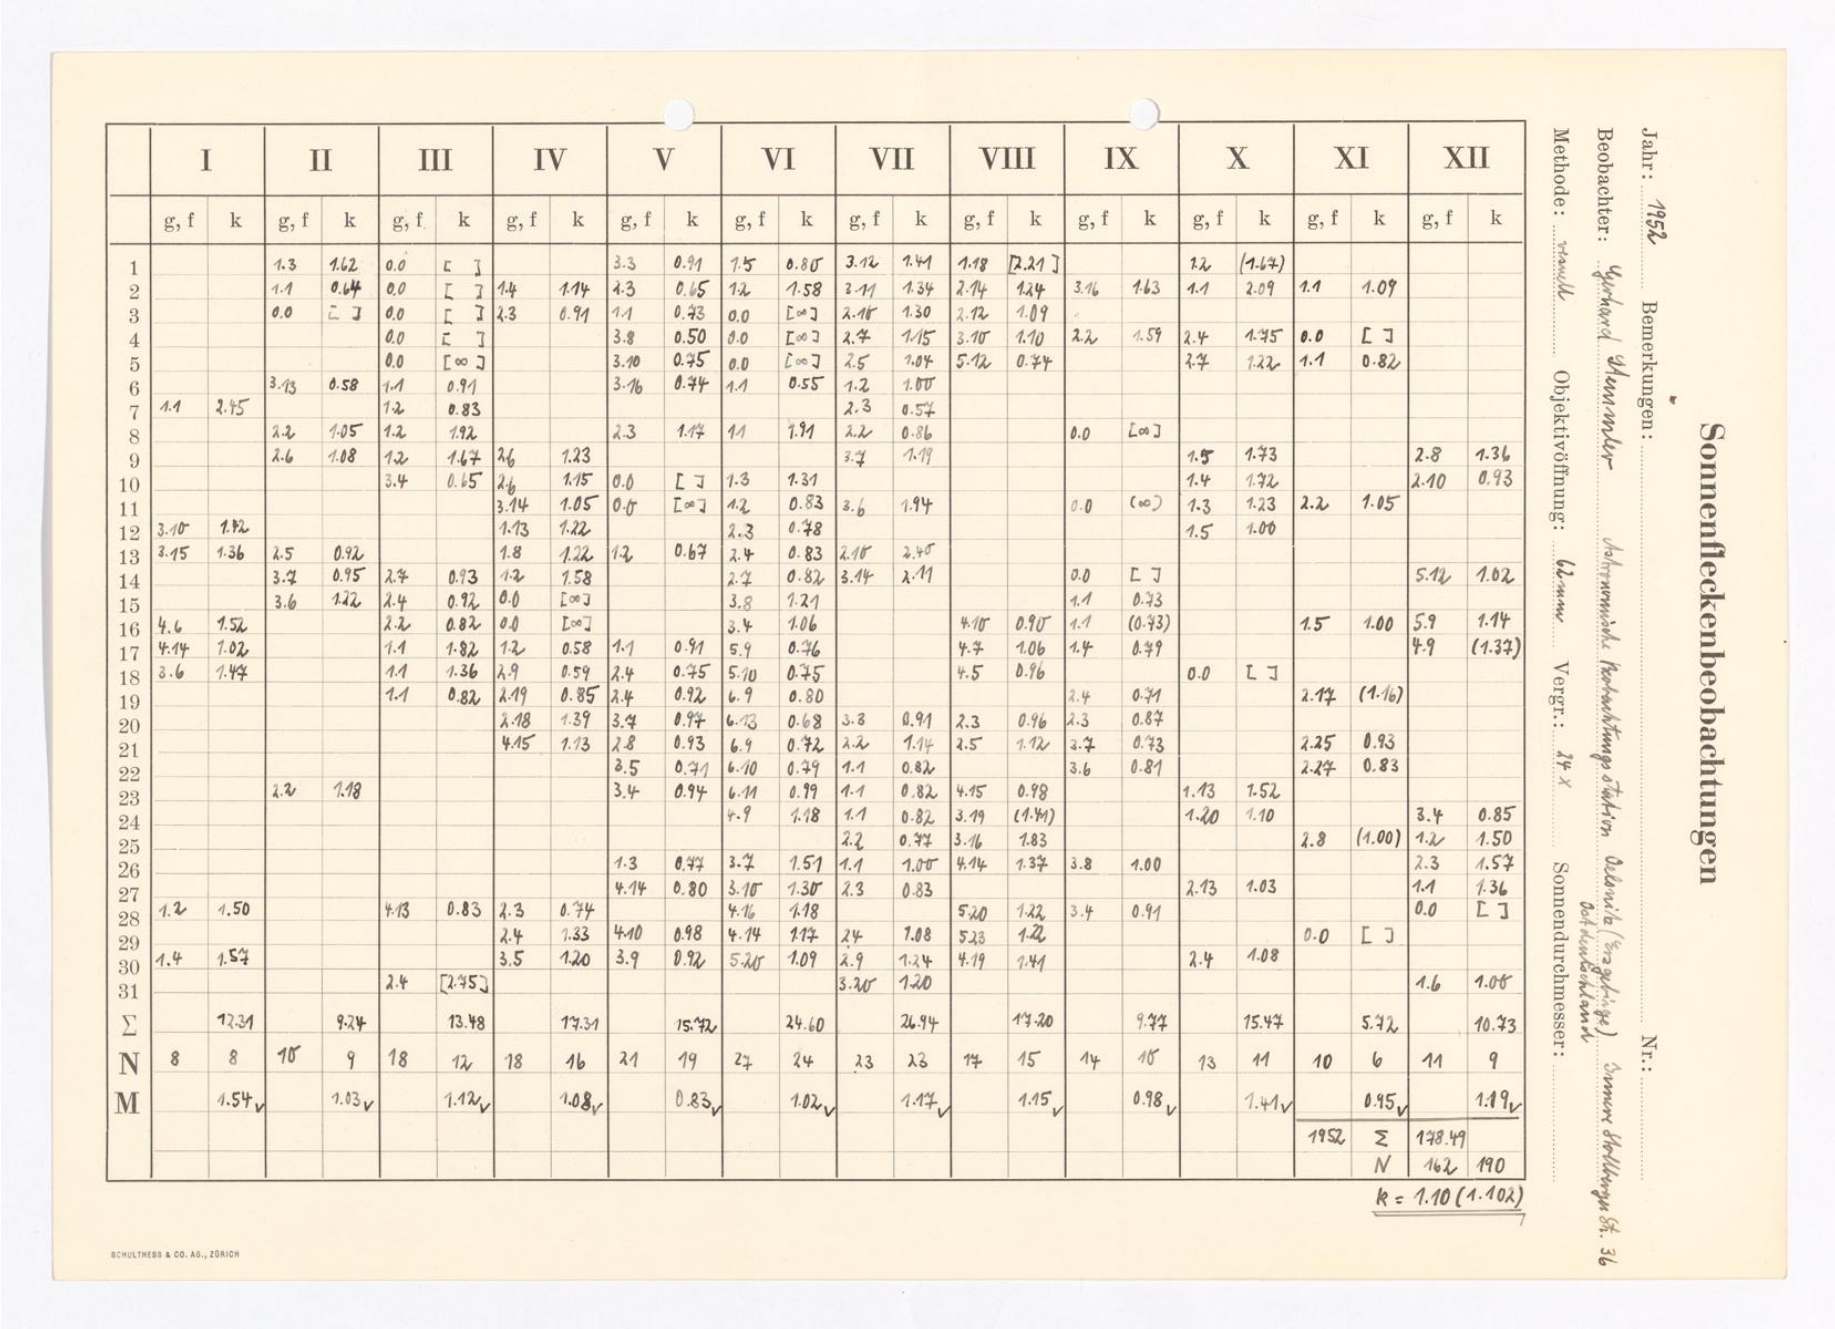 Sonnenfleckenbeobachtungen
Jahr: 1952 Bemerkungen: Nr.:
Beobachter: Gerhard Stemmler Astronomische Beobachtungsstation Oelsnitz (Erzgebirge) Innere Stollberger St. 36
Ostdeutschland
Methode: visuell Objektivöffnung: 62mm Vergr.: 24 x Sonnendurchmesser:
I II III IV V VI VII VIII IX X XI XII
g, f k g, f k g, f k g, f k g, f k g, f k g, f k g, f k g, f k g, f k g, f k g, f k
1 1.3 1.62 0.0 [ ] 3.3 0.91 1.5 0.80 3.12 1.41 1.18 [2.21] 1.2 (1.67)
2 1.1 0.64 0.0 [ ] 1.4 1.14 2.3 0.65 1.2 1.58 3.11 1.34 2.14 1.24 3.16 1.63 1.1 2.09 1.1 1.09
3 0.0 [ ] 0.0 [ ] 2.3 0.91 1.1 0.73 0.0 [∞] 2.10 1.30 2.12 1.09
4 0.0 [ ] 3.8 0.50 0.0 [∞] 2.7 1.15 3.10 1.10 2.2 1.59 2.4 1.75 0.0 [ ]
5 0.0 [∞] 3.10 0.75 0.0 [∞] 2.5 1.04 5.12 0.74 2.7 1.22 1.1 0.82
6 3.13 0.58 1.1 0.91 3.16 0.74 1.1 0.55 1.2 1.00
7 1.1 2.45 1.2 0.83 2.3 0.57
8 2.2 1.05 1.2 1.92 2.3 1.17 1.1 1.91 2.2 0.86 0.0 [∞]
9 2.6 1.08 1.2 1.67 2.6 1.23 3.7 1.19 1.5 1.73 2.8 1.36
10 3.4 0.65 2.6 1.15 0.0 [ ] 1.3 1.31 1.4 1.72 2.10 0.93
11 3.14 1.05 0.0 [∞] 1.2 0.83 3.6 1.94 0.0 (∞) 1.3 1.23 2.2 1.05
12 3.10 1.42 1.13 1.22 2.3 0.78 1.5 1.00
13 3.15 1.36 2.5 0.92 1.8 1.22 1.2 0.67 2.4 0.83 2.10 2.40
14 3.7 0.95 2.7 0.93 1.2 1.58 2.7 0.82 3.14 2.11 0.0 [ ] 5.12 1.02
15 3.6 1.22 2.4 0.92 0.0 [∞] 3.8 1.21 1.1 0.73
16 4.6 1.52 2.2 0.82 0.0 [∞] 3.4 1.06 4.10 0.90 1.1 (0.73) 1.5 1.00 5.9 1.14
17 4.14 1.02 1.1 1.82 1.2 0.58 1.1 0.91 5.9 0.76 4.7 1.06 1.4 0.79 4.9 (1.37)
18 3.6 1.47 1.1 1.36 2.9 0.59 2.4 0.75 5.10 0.75 4.5 0.96 0.0 [ ]
19 1.1 0.82 2.19 0.85 2.4 0.92 6.9 0.80 2.4 0.71 2.17 (1.16)
20 2.18 1.39 3.7 0.97 6.13 0.68 3.3 0.91 2.3 0.96 2.3 0.87
21 4.15 1.13 2.8 0.93 6.9 0.72 2.2 1.14 2.5 1.12 3.7 0.73 2.25 0.93
22 3.5 0.71 6.10 0.79 1.1 0.82 3.6 0.81 2.27 0.83
23 2.2 1.18 3.4 0.94 6.11 0.99 1.1 0.82 4.15 0.98 1.13 1.52
24 4.9 1.18 1.1 0.82 3.19 (1.41) 1.20 1.10 3.4 0.85
25 2.2 0.77 3.16 1.83 2.8 (1.00) 1.2 1.50
26 1.3 0.77 3.7 1.51 1.1 1.00 4.14 1.37 3.8 1.00 2.3 1.57
27 4.14 0.80 3.10 1.30 2.3 0.83 2.13 1.03 1.1 1.36
28 1.2 1.50 4.13 0.83 2.3 0.74 4.16 1.18 5.20 1.22 3.4 0.91 0.0 [ ]
29 2.4 1.33 4.10 0.98 4.14 1.17 2.4 1.08 5.23 1.22 0.0 [ ]
30 1.4 1.57 3.5 1.20 3.9 0.92 5.20 1.09 2.9 1.24 4.19 1.41 2.4 1.08
31 2.4 [2.75] 3.20 1.20 1.6 1.00
Σ 12.31 9.24 13.48 17.31 15.72 24.60 26.94 17.20 9.77 15.47 5.72 10.73
N 8 8 10 9 18 12 18 16 21 19 27 24 23 23 17 15 14 10 13 11 10 6 11 9
M 1.54✓ 1.03✓ 1.12✓ 1.08✓ 0.83✓ 1.02✓ 1.17✓ 1.15✓ 0.98✓ 1.41✓ 0.95✓ 1.19✓
1952 Σ 178.49
N 162 190
k = 1.10 (1.102)
SCHULTHESS & CO. AG., ZÜRICH